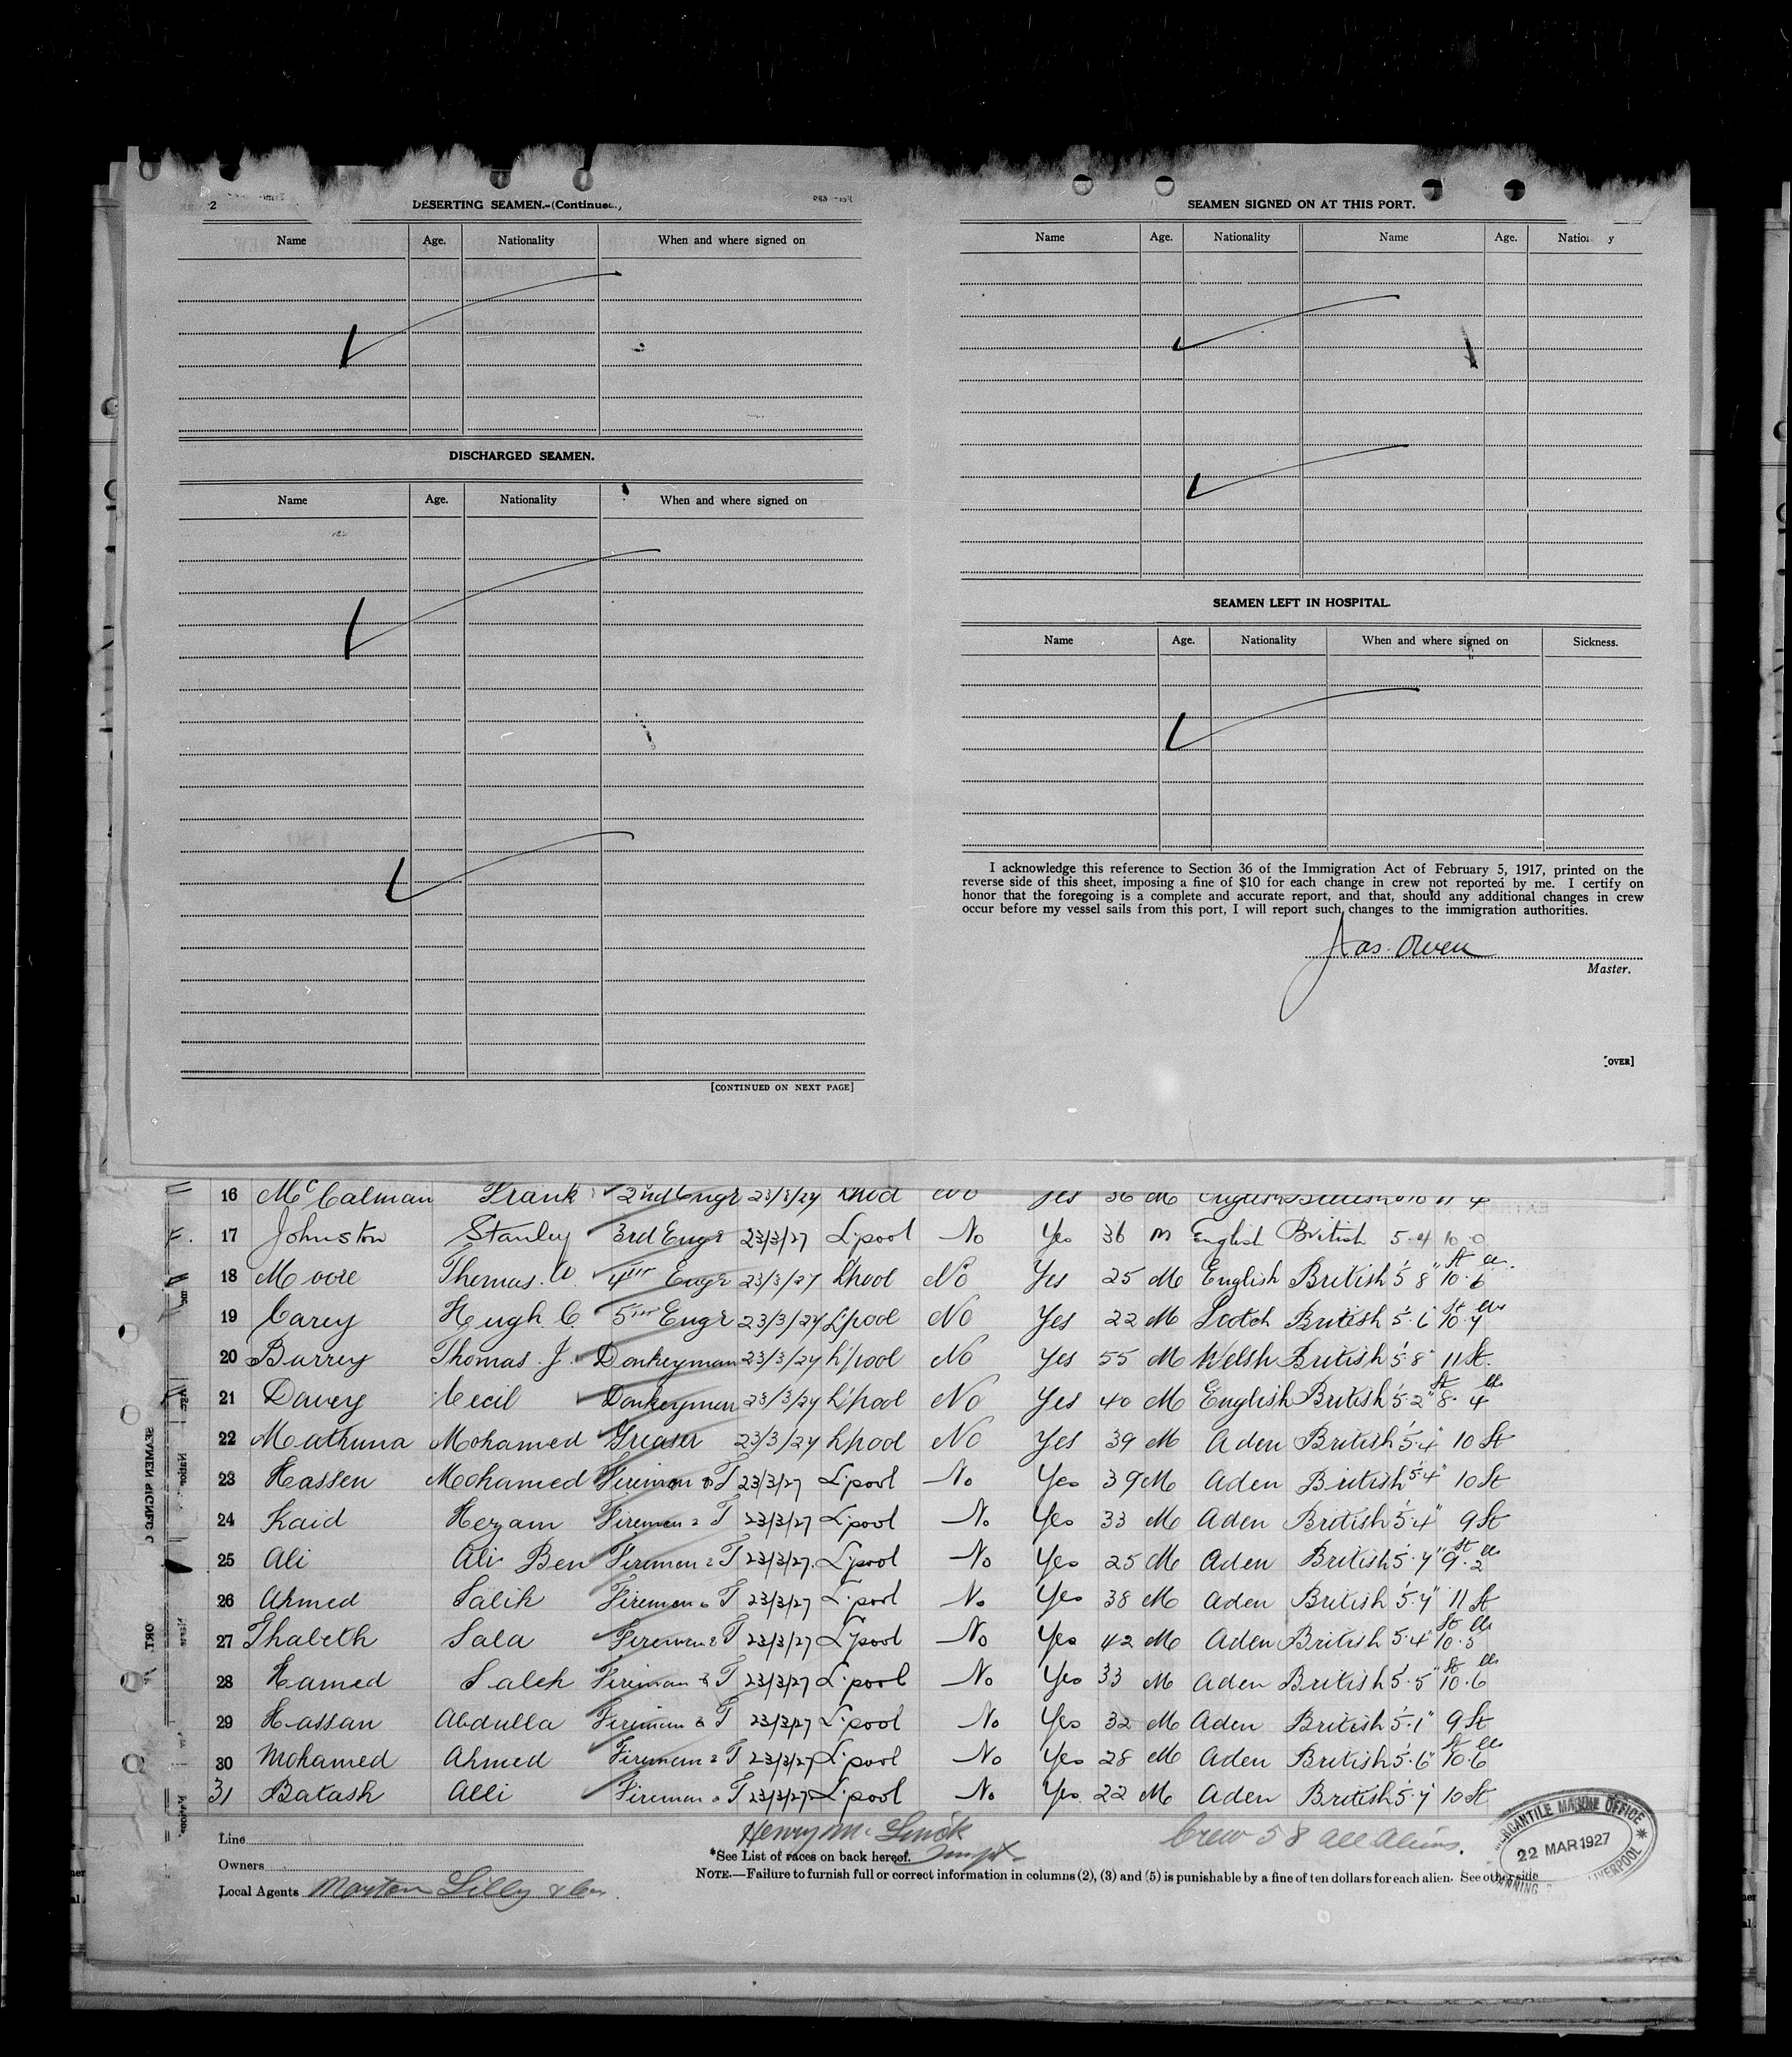 2
DESERTING SEAMEN.-(Continued.)
Name Age. Nationality When and where signed on
DISCHARGED SEAMEN.
Name Age. Nationality When and where signed on
[CONTINUED ON NEXT PAGE]
SEAMEN SIGNED ON AT THIS PORT.
Name Age. Nationality Name Age. Natio y
SEAMEN LEFT IN HOSPITAL.
Name Age. Nationality When and where signed on Sickness.
I acknowledge this reference to Section 36 of the Immigration Act of February 5, 1917, printed on the
reverse side of this sheet, imposing a fine of $10 for each change in crew not reported by me. I certify on
honor that the foregoing is a complete and accurate report, and that, should any additional changes in crew
occur before my vessel sails from this port, I will report such changes to the immigration authorities.
Jas. Owen
Master.
[OVER]
16 McCalman Frank 2nd Engr 23/3/27 L'pool No Yes 36 M English British 11 4
17 Johnston Stanley 3rd Engr 23/3/27 L'pool No Yes 36 M English British 5.4 10.0
18 Moore Thomas. W 4th Engr 23/3/27 L'pool No Yes 25 M English British 5'8" 10.6
19 Carey Hugh. C 5th Engr 23/3/27 L'pool No Yes 22 M Scotch British 5'.6 10.7
20 Barrey Thomas. J. Donkeyman 23/3/27 L'pool No Yes 55 M Welsh British 5'.8" 11 St.
21 Davey Cecil Donkeyman 23/3/27 L'pool No Yes 40 M English British 5'.2" 8.4
22 Mathuna Mohamed Greaser 23/3/27 L'pool No Yes 39 M Aden British 5'.4" 10 St
23 Hassen Mohamed Fireman & T 23/3/27 L'pool No Yes 39 M Aden British 5'.4" 10 St
24 Kaid Hezam Fireman & T 23/3/27 L'pool No Yes 33 M Aden British 5'.4" 9 St
25 Ali Ali Ben Fireman & T 23/3/27. L'pool No Yes 25 M Aden British 5'.7" 9.2
26 Ahmed Salih Fireman & T 23/3/27 L'pool No Yes 38 M Aden British 5'.7" 11 St
27 Thabeth Sala Fireman & T 23/3/27 L'pool No Yes 42 M Aden British 5'.4" 10.5
28 Hamed Saleh Fireman & T 23/3/27 L'pool No Yes 33 M Aden British 5'.5" 10.6
29 Hassan Abdulla Fireman & T 23/3/27 L'pool No Yes 32 M Aden British 5'.1" 9 St
30 Mohamed Ahmed Fireman & T 23/3/27 L'pool No Yes 28 M Aden British 5'.6" 10.6
31 Batash Alli Fireman & T 23/3/27 L'pool No Yes 22 M Aden British 5'.7 10 St
Line
Owners
Local Agents Morton Lilly & Co.
*See List of races on back hereof.
NOTE.—Failure to furnish full or correct information in columns (2), (3) and (5) is punishable by a fine of ten dollars for each alien. See other side
Crew 58 all Aliens.
MERCANTILE MARINE OFFICE
22 MAR 1927
LIVERPOOL